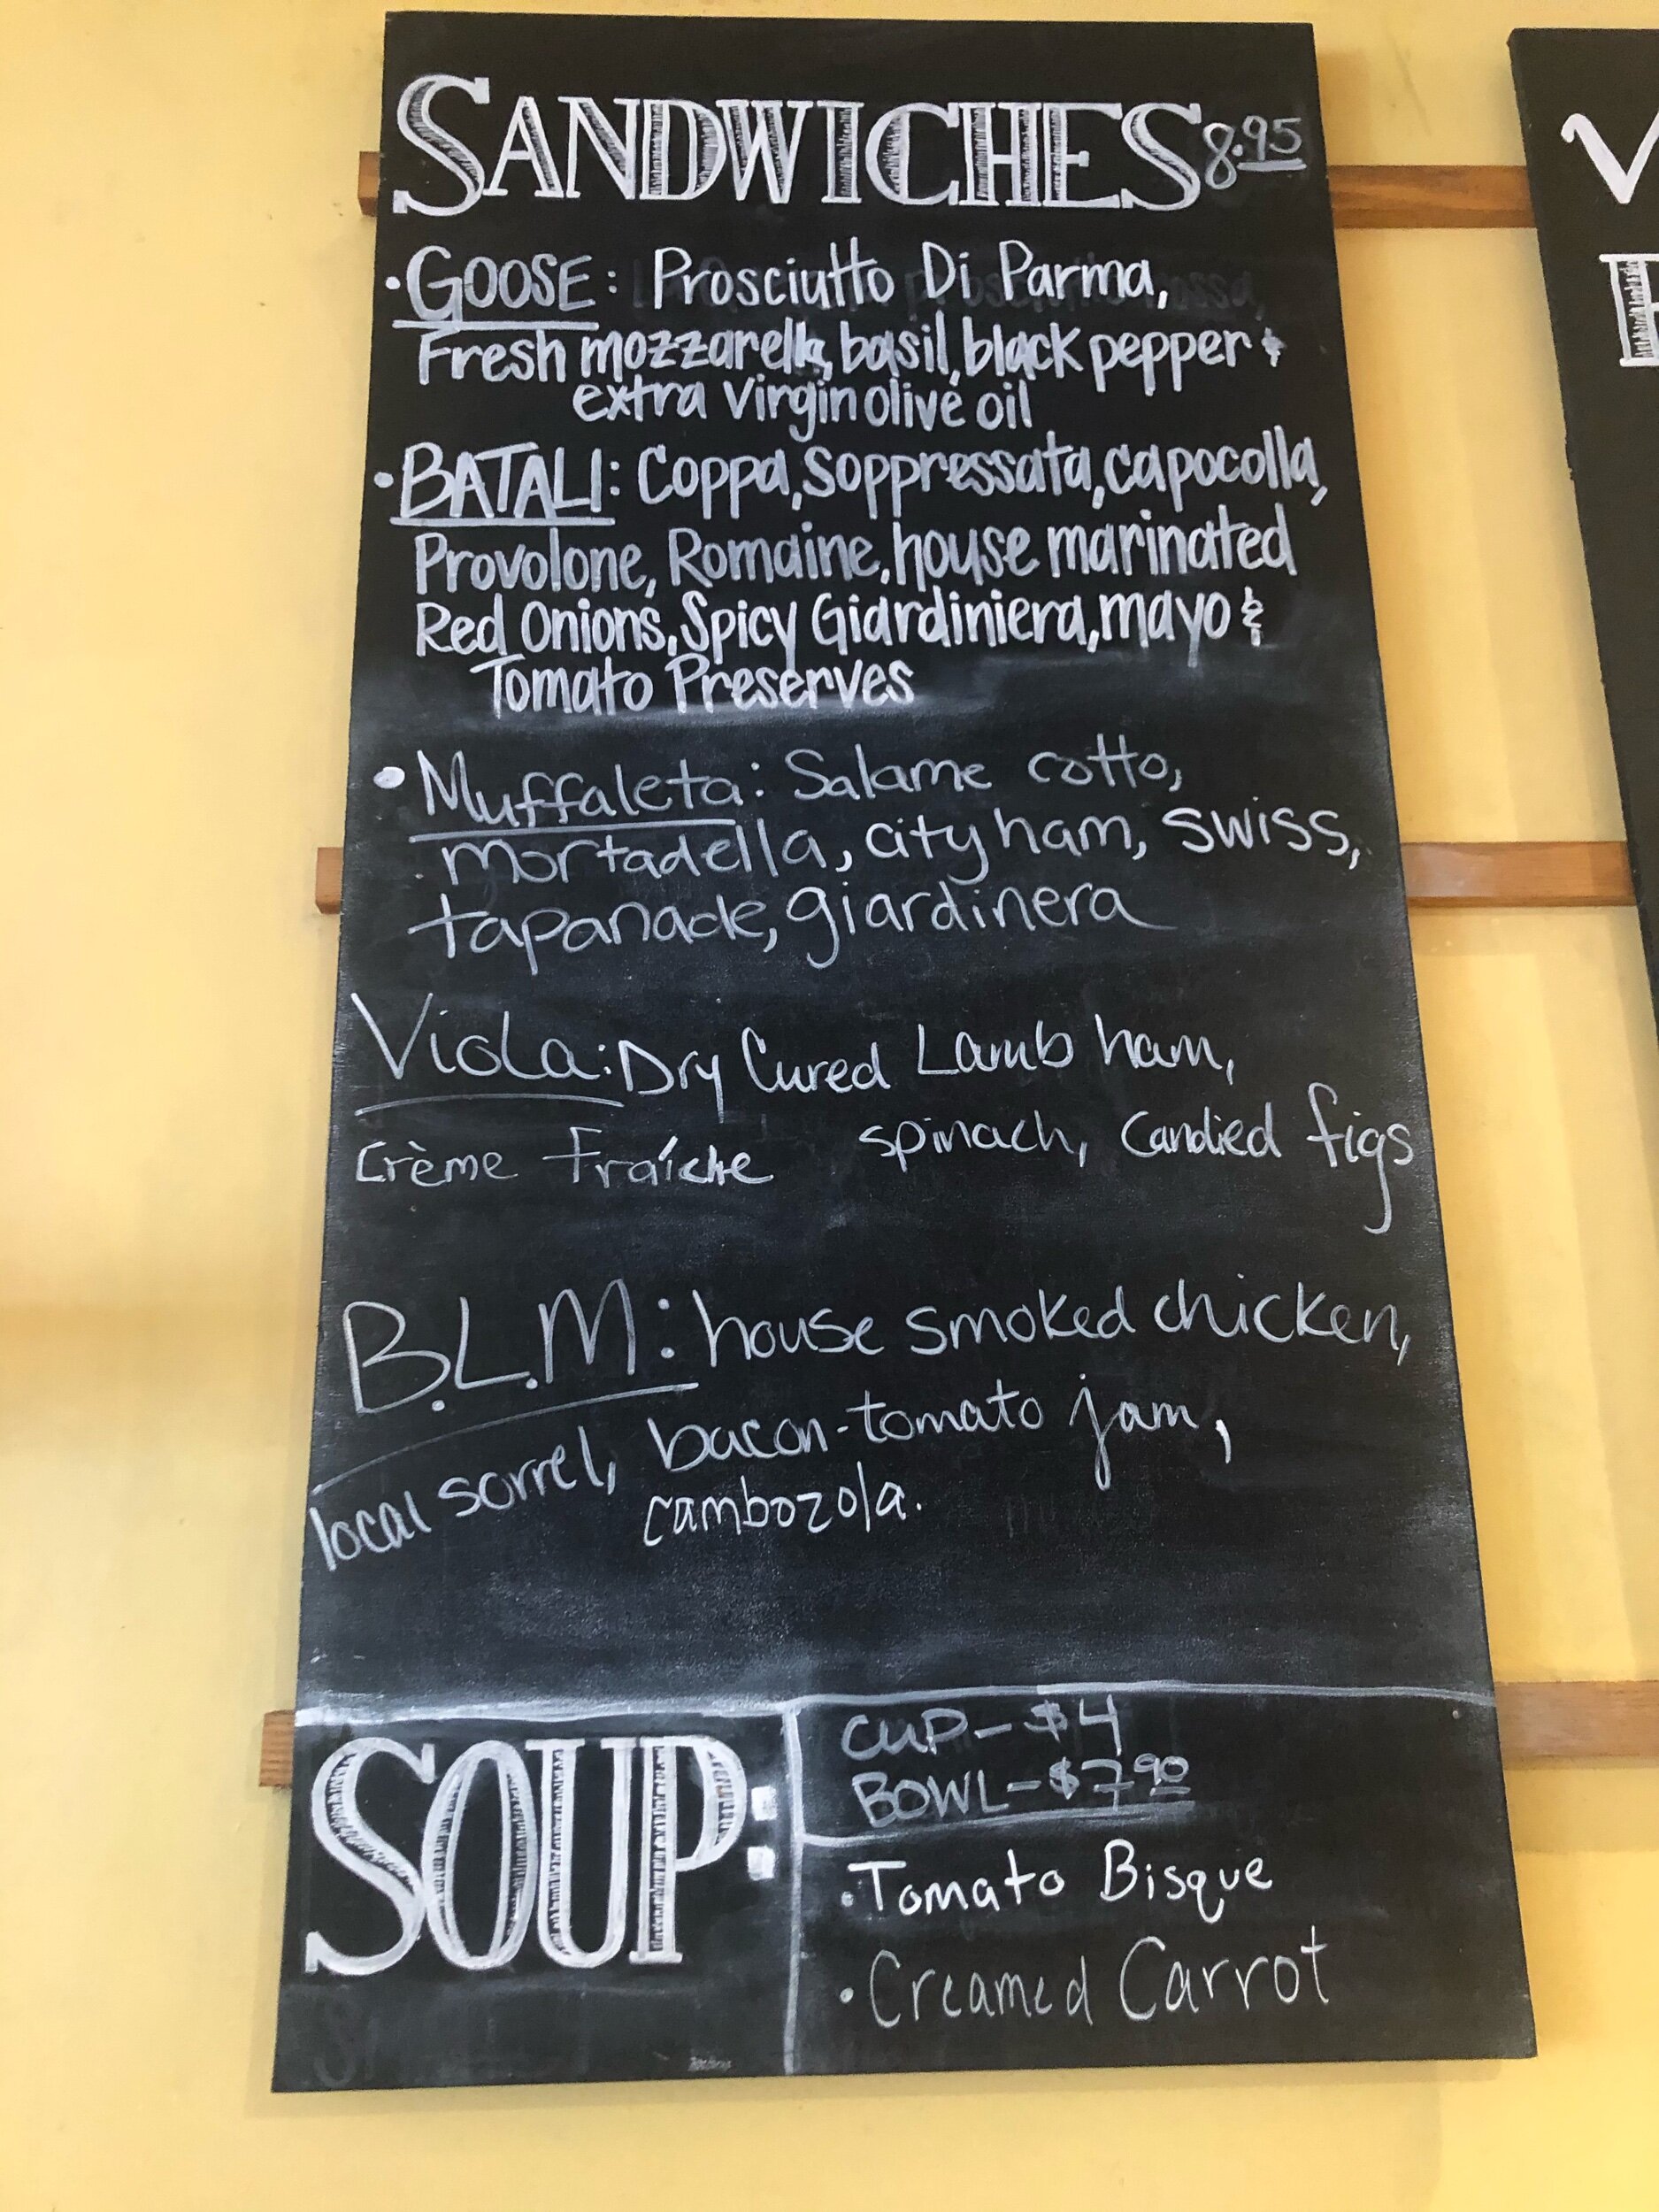 SANDWICHES 8.95
• GOOSE: Prosciutto Di Parma,
Fresh mozzarella, basil, black pepper &
extra virgin olive oil
• BATALI: Coppa, Soppressata, capocolla,
Provolone, Romaine, house marinated
Red Onions, Spicy Giardiniera, mayo &
Tomato Preserves
• Muffaleta: Salame cotto,
mortadella, city ham, swiss,
tapanade, giardinera
Viola: Dry Cured Lamb ham,
Crème Fraíche spinach, candied figs
B.L.M: house smoked chicken,
local sorrel, bacon-tomato jam,
cambozola.
SOUP:
CUP - $4
BOWL - $7.90
• Tomato Bisque
• Creamed Carrot